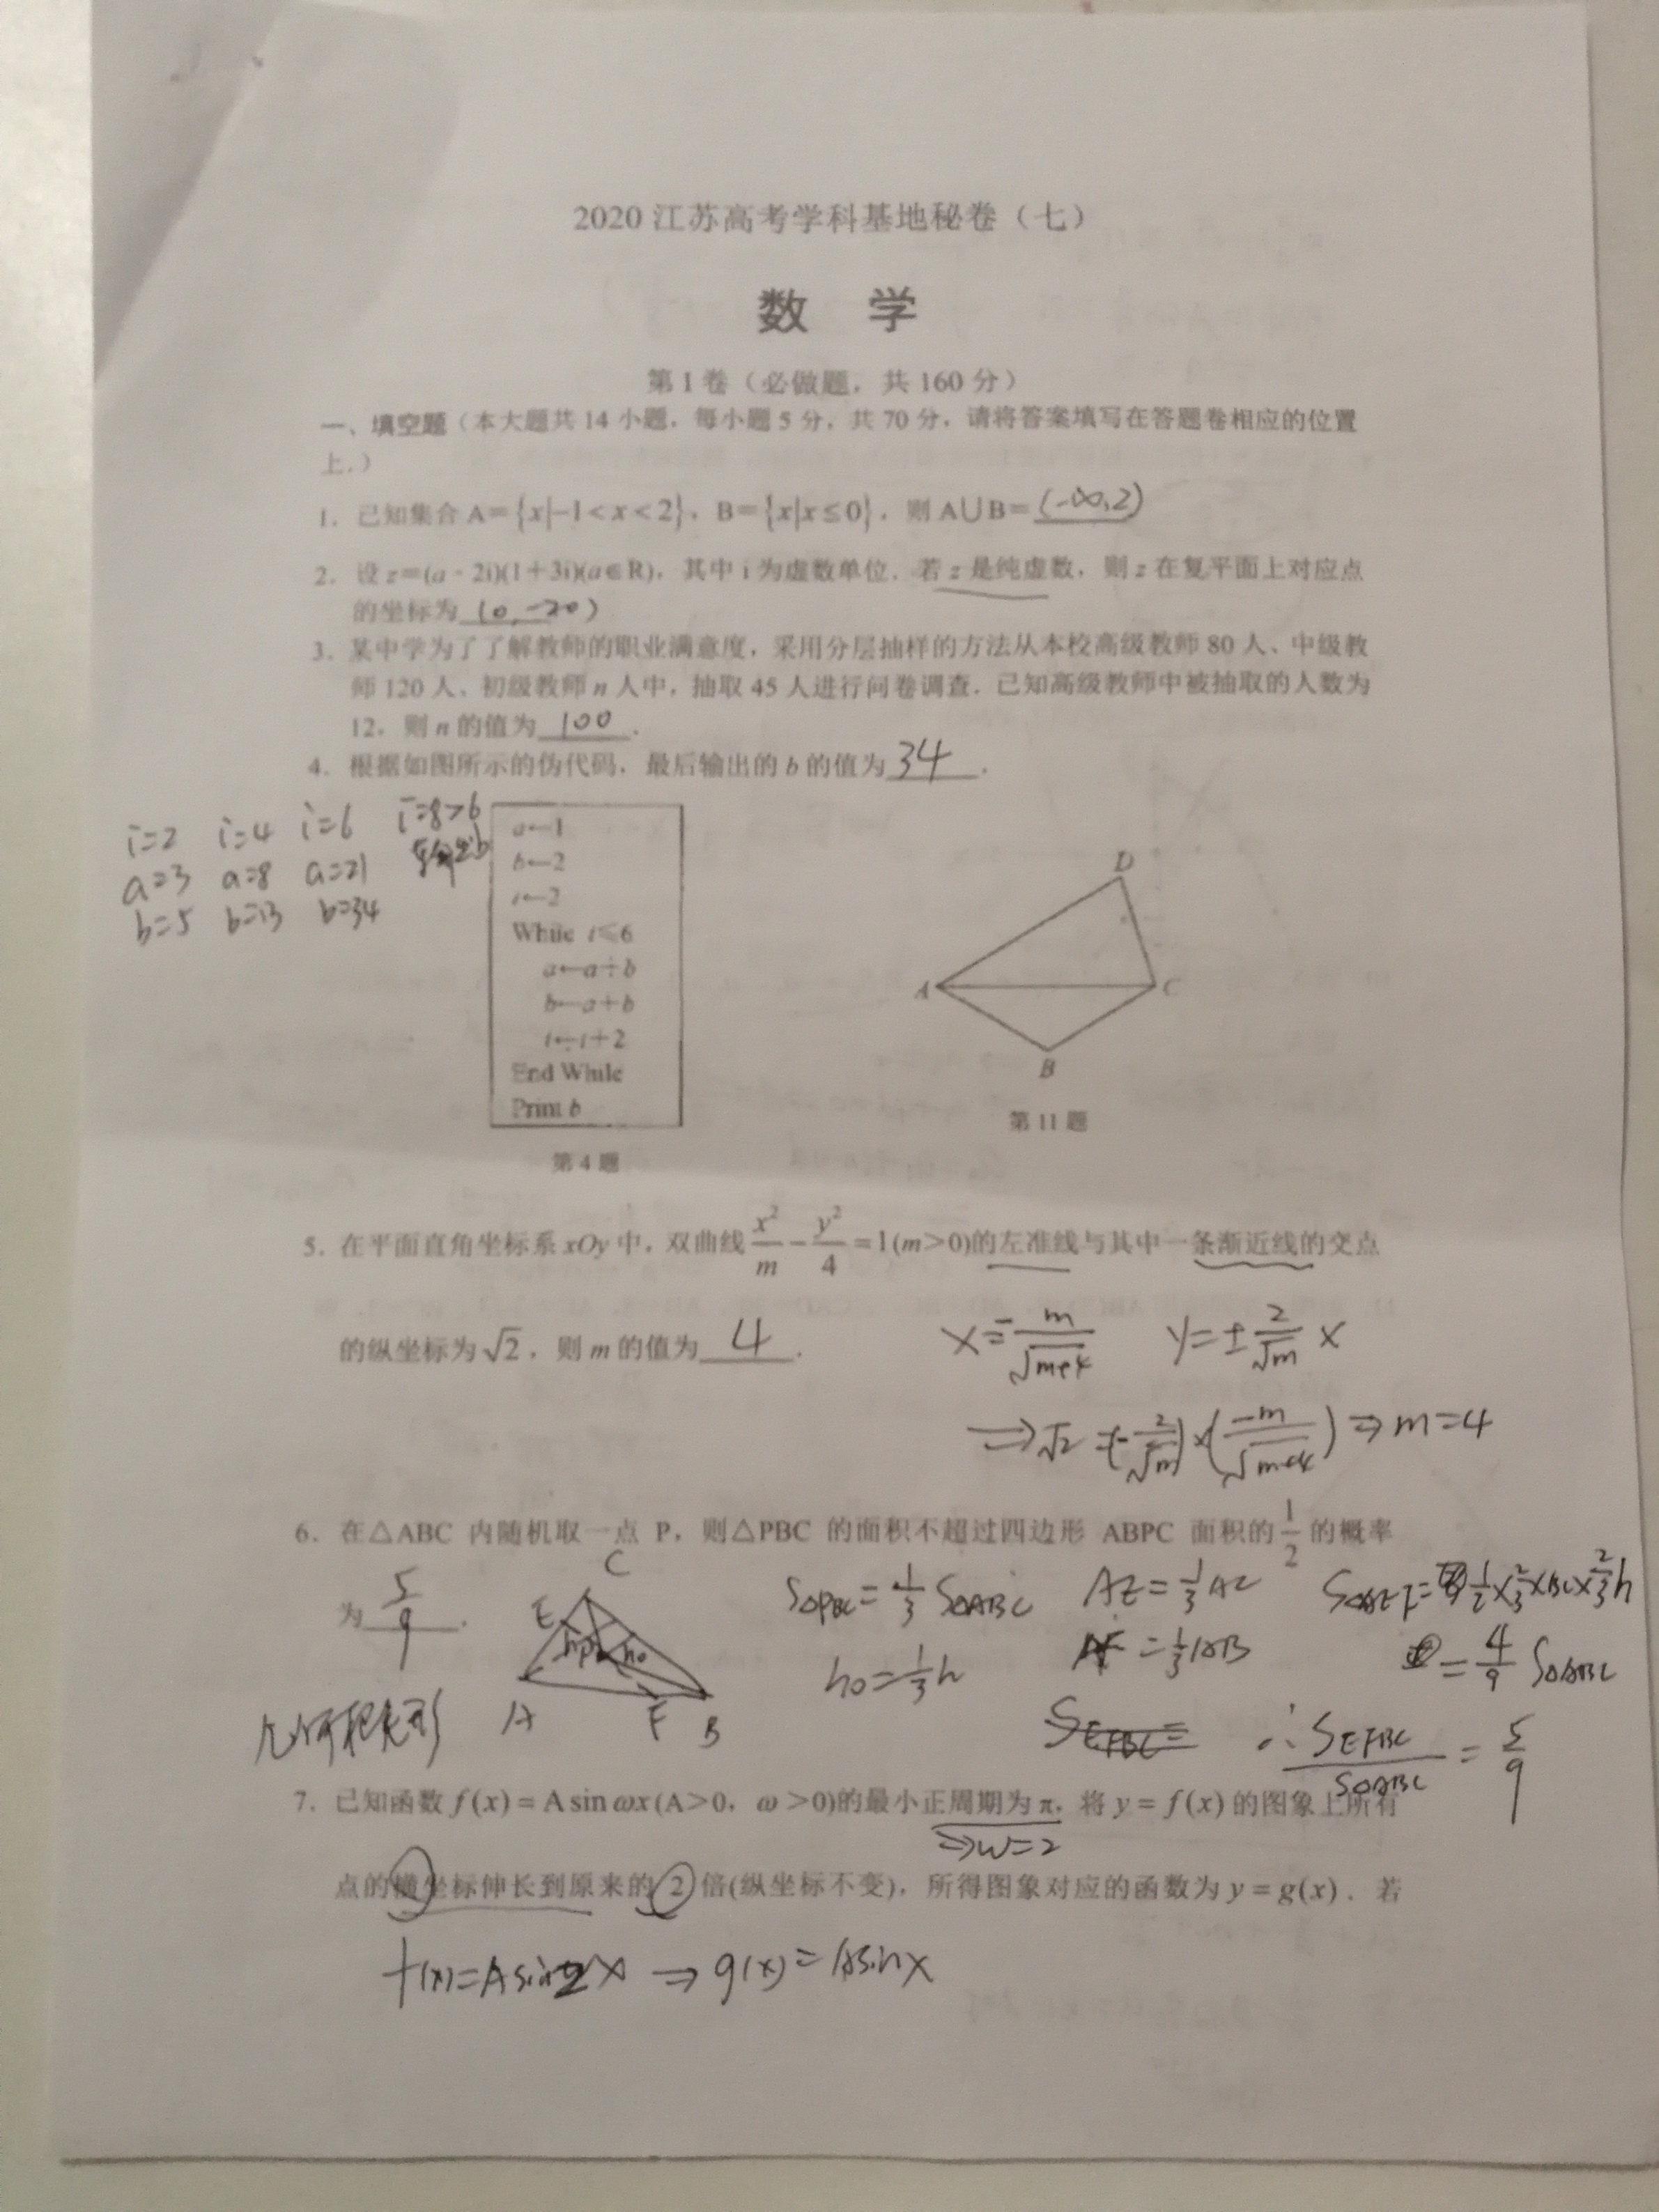 2020 江苏高考学科基地秘卷（七）
数 学
第 1 卷（必做题，共 160 分）
一、填空题（本大题共 14 小题，每小题 5 分，共 70 分，请将答案填写在答题卷相应的位置
上．）
1. 已知集合 A={x|-1<x<2}，B={x|x≤0}，则 A∪B=(-∞,2)
2. 设 z=(a-2i)(1+3i)(a∈R)，其中 i 为虚数单位．若 z 是纯虚数，则 z 在复平面上对应点
的坐标为 (0,-20)
3. 某中学为了了解教师的职业满意度，采用分层抽样的方法从本校高级教师 80 人、中级教
师 120 人、初级教师 n 人中，抽取 45 人进行问卷调查．已知高级教师中被抽取的人数为
12，则 n 的值为 100 ．
4. 根据如图所示的伪代码，最后输出的 b 的值为 34 ．
i=2 i=4 i=6 i=8>6
a=3 a=8 a=21
b=5 b=13 b=34
a←1
b←2
i←2
While i≤6
a←a+b
b←a+b
i←i+2
End While
Print b
第 4 题
D
A
C
B
第 11 题
5. 在平面直角坐标系 xOy 中，双曲线 x²/m - y²/4 =1(m>0)的左准线与其中一条渐近线的交点
的纵坐标为√2，则 m 的值为 4 ．
x=-m/√(m+4) y=±2/√m x
⇒√2=(-2/√m)×(-m/√(m+4))⇒m=4
6. 在△ABC 内随机取一点 P，则△PBC 的面积不超过四边形 ABPC 面积的 1/2 的概率
为 5/9 ．
C
E
P
h₀
A
F
B
几何概型
S△PBC=1/3 S△ABC
h₀=1/3 h
AE=1/3 AC
AF=1/3 AB
S△AEF=1/2×2/3×BC×2/3h
=4/9 S△ABC
SEFBC=
∴SEFBC/S△ABC=5/9
7. 已知函数 f(x)=A sin ωx(A>0，ω>0)的最小正周期为π，将 y=f(x)的图象上所有
⇒w=2
点的横坐标伸长到原来的 2 倍(纵坐标不变)，所得图象对应的函数为 y=g(x)．若
f(x)=Asin2x ⇒ g(x)=Asinx